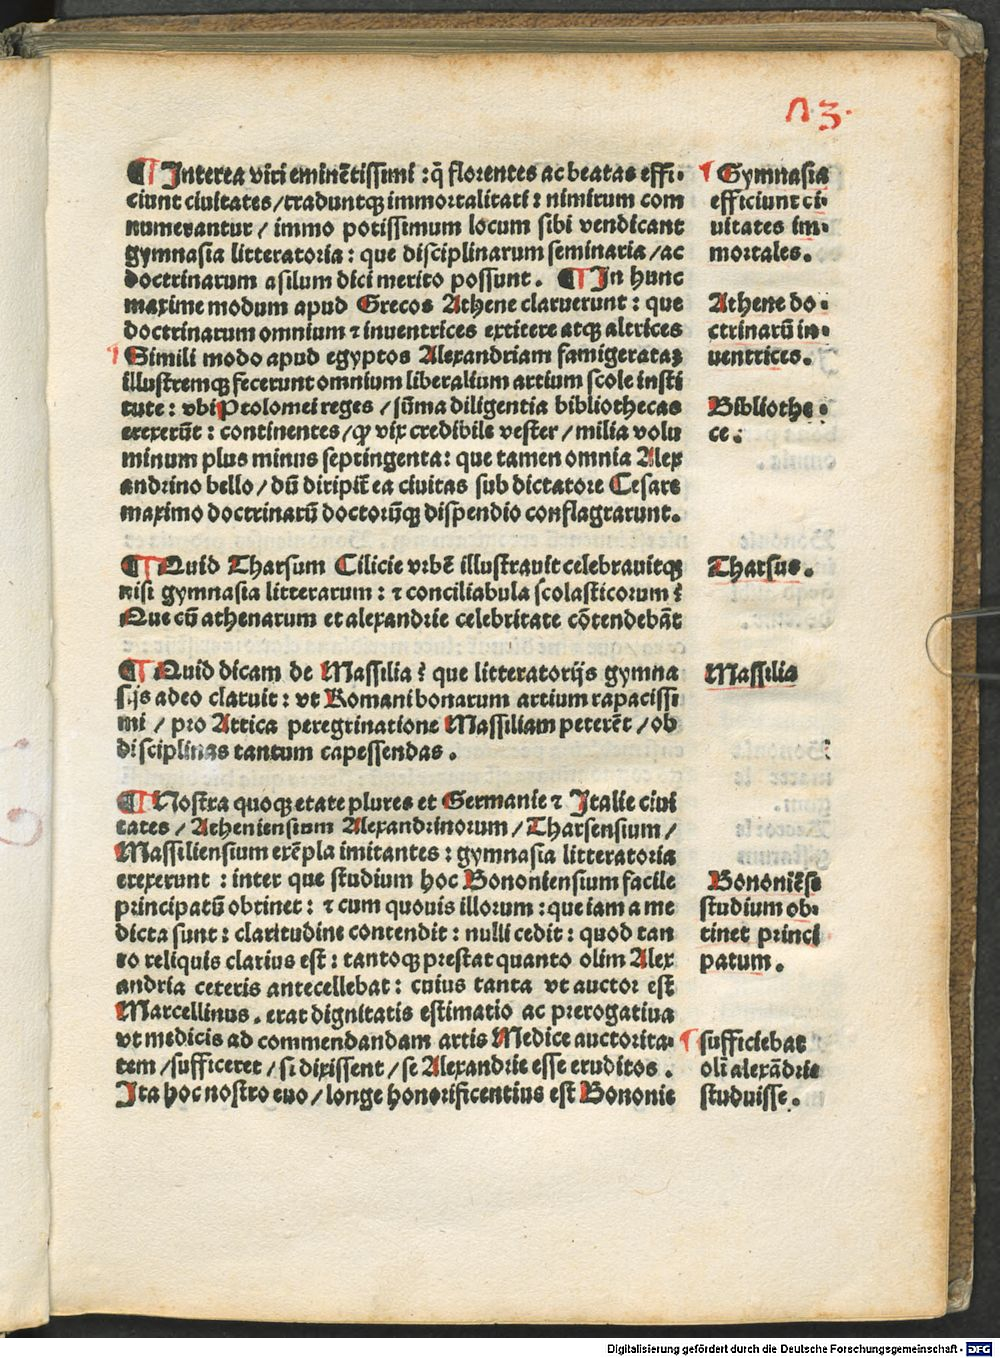 n 3.
¶ Interea viri eminētissimi : q̄ florentes ac beatas effi-
ciunt ciuitates / traduntqꝫ immortalitati : nimirum com
numerantur / immo potissimum locum sibi vendicant
gymnasia litteratoria : que disciplinarum seminaria / ac
doctrinarum asilum dici merito possunt . ¶ In hunc
maxime modum apud Grecos Athene claruerunt : que
doctrinarum omnium ⁊ inuentrices extitere atqꝫ altrices
¶ Simili modo apud egyptos Alexandriam famigeratas
illustremqꝫ fecerunt omnium liberalium artium scole insti
tute : vbi Ptolomei reges / sūma diligentia bibliothecas
erexerūt : continentes / qͥ vix credibile vester / milia volu
minum plus minus septingenta : que tamen omnia Alex
andrino bello / dū diripit̄ ea ciuitas sub dictatore Cesare
maximo doctrinarū doctorūqꝫ dispendio conflagrarunt .
¶ Quid Tharsum Cilicie vrbē illustrauit celebrauitqꝫ
nisi gymnasia litterarum : ⁊ conciliabula scolasticorum ?
Que cū athenarum et alexandrie celebritate cōtendebāt
¶ Quid dicam de Massilia ? que litteratorijs gymna
sijs adeo claruit : vt Romani bonarum artium rapacissi
mi / pro Attica peregrinatione Massiliam peterēt / ob
disciplinas tantum capessendas .
¶ Nostra quoqꝫ etate plures et Germanie ⁊ Italie ciui
tates / Atheniensium Alexandrinorum / Tharsensium /
Massiliensium exēpla imitantes : gymnasia litteratoria
erexerunt : inter que studium hoc Bononiensium facile
principatū obtinet : ⁊ cum quouis illorum : que iam a me
dicta sunt : claritudine contendit : nulli cedit : quod tan
to reliquis clarius est : tantoqꝫ prestat quanto olim Alex
andria ceteris antecellebat : cuius tanta vt auctor est
Marcellinus . erat dignitatis estimatio ac prerogatiua
vt medicis ad commendandam artis Medice auctorita-
tem / sufficeret / si dixissent / se Alexandrie esse eruditos .
Ita hoc nostro euo / longe honorificentius est Bononie
¶ Gymnasia
efficiunt ci-
uitates im-
mortales .
Athene do-
ctrinarū in-
uentrices .
Bibliothe-
ce .
Tharsus .
Massilia
Bononiēse
studium ob-
tinet princi
patum .
¶ sufficiebat
oli alexādrie
studuisse .
Digitalisierung gefördert durch die Deutsche Forschungsgemeinschaft - DFG